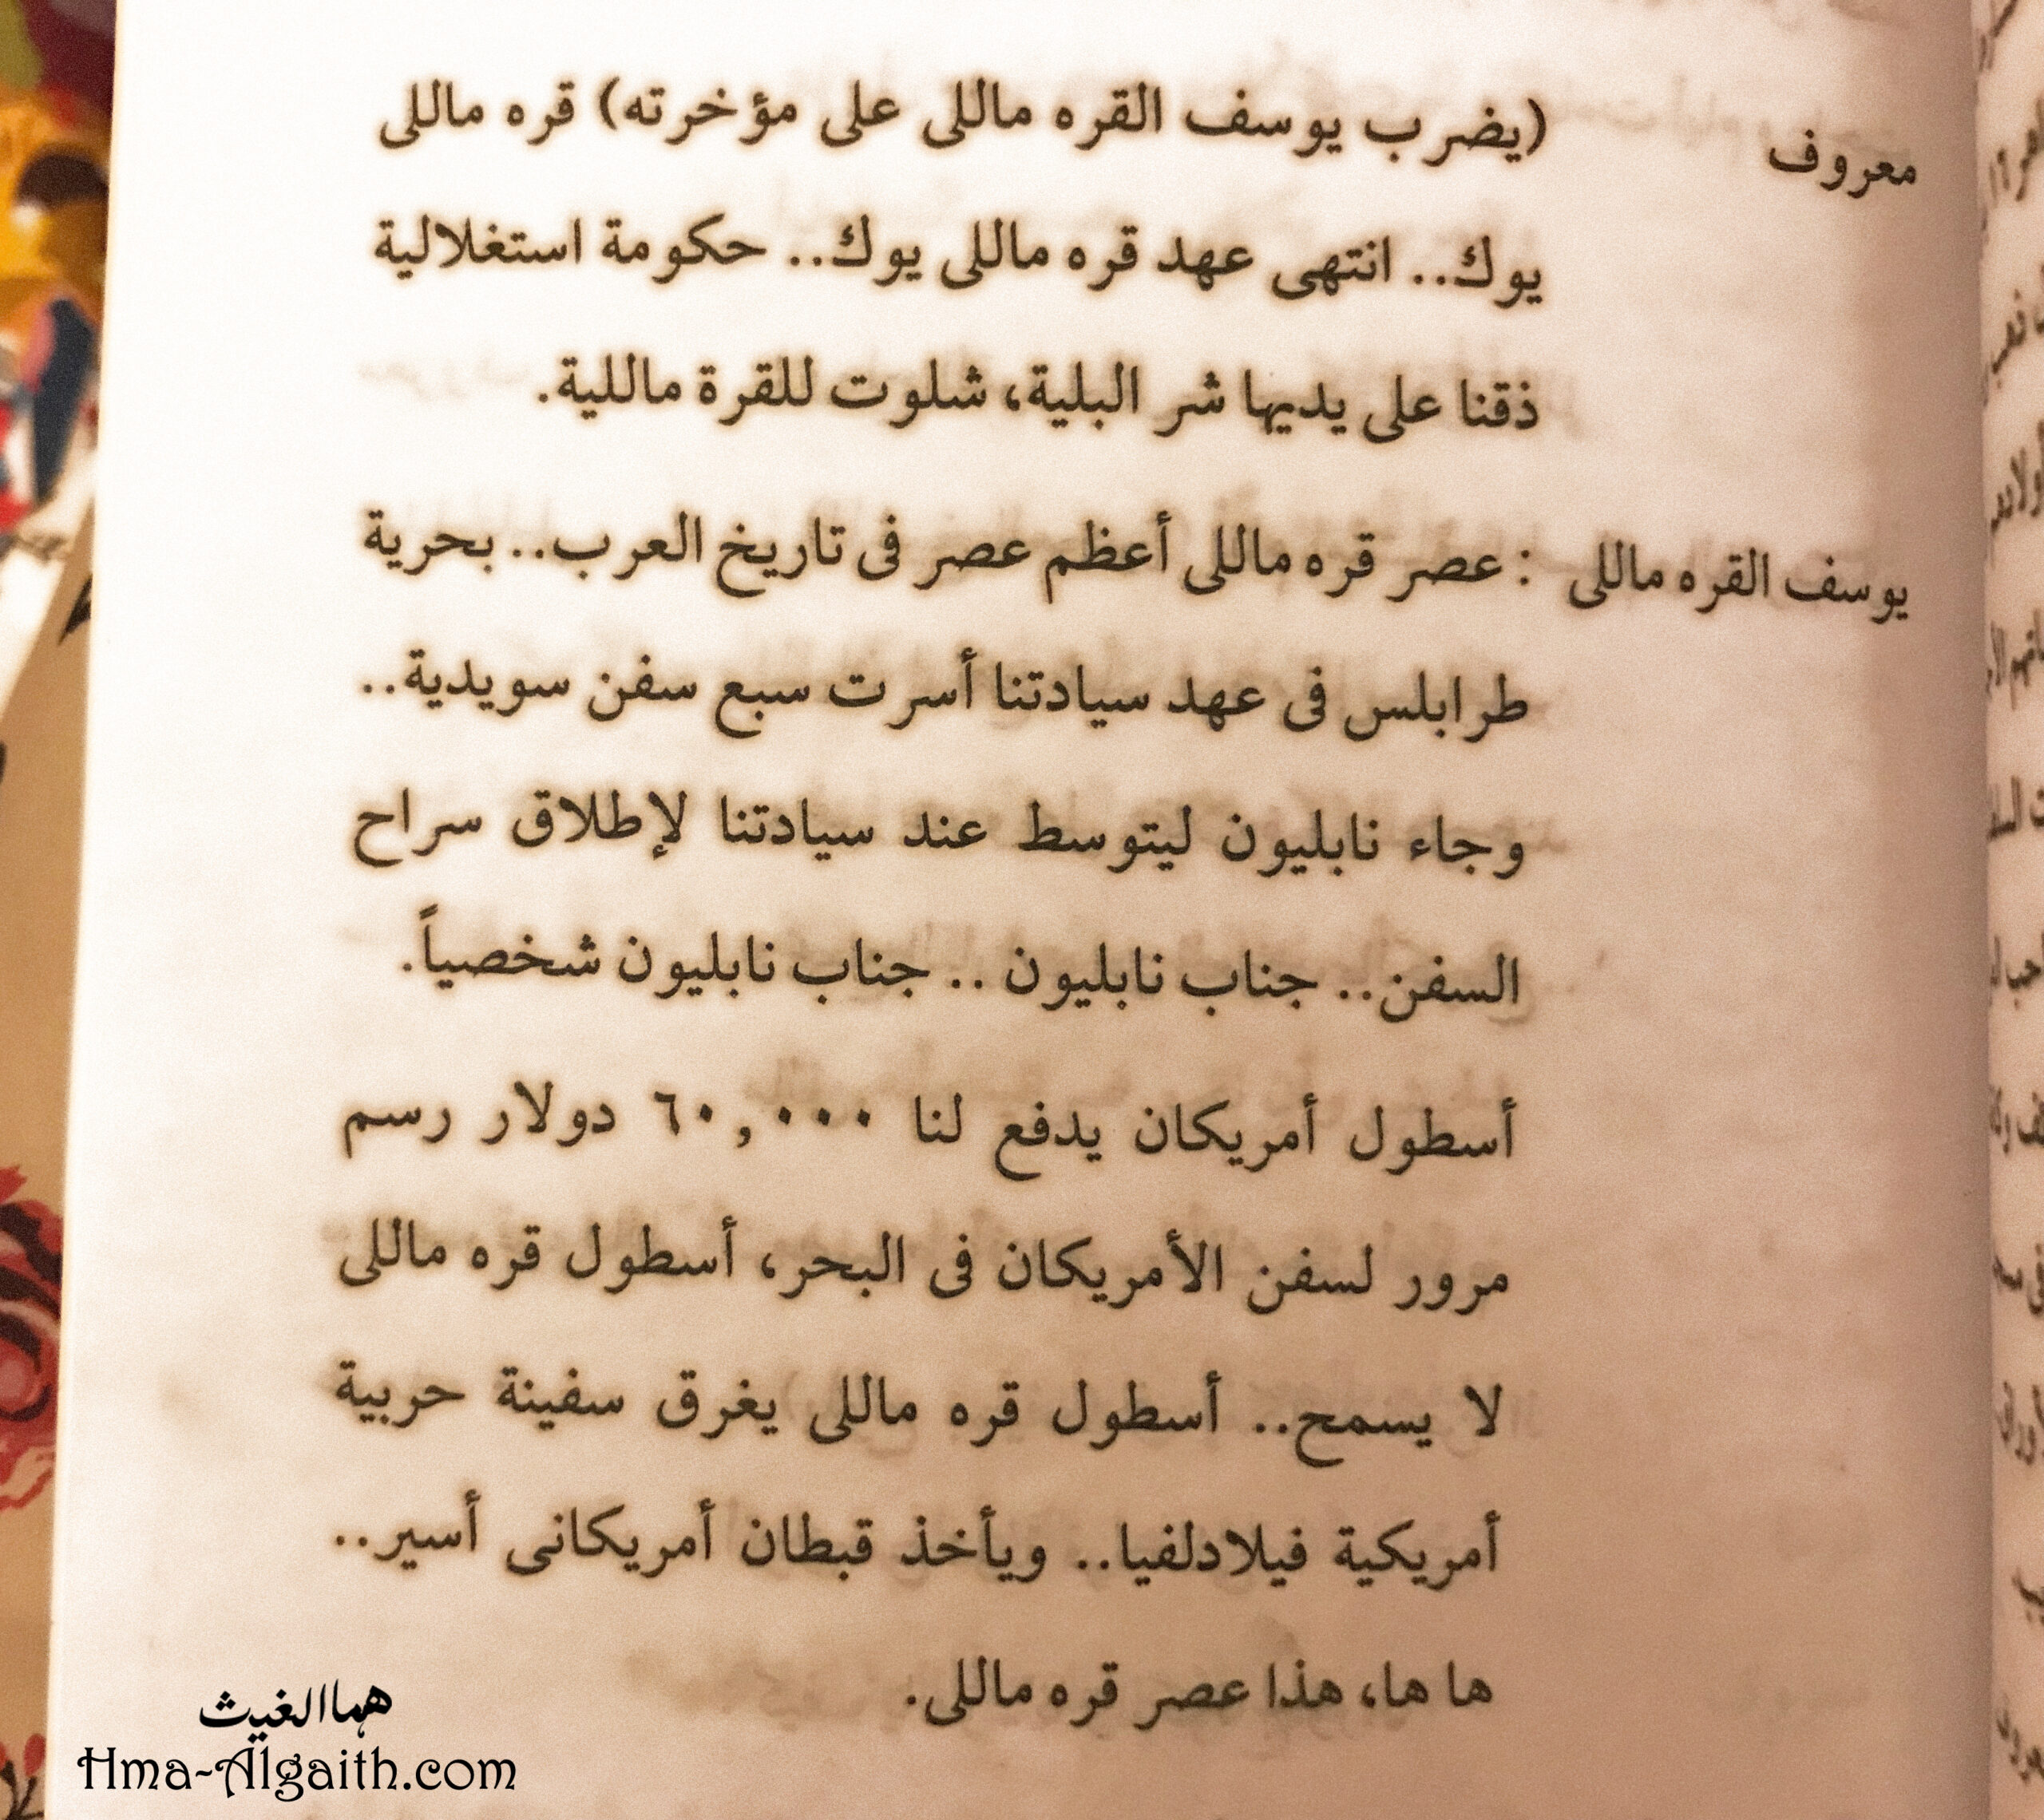 معروف (يضرب يوسف القره ماللى على مؤخرته) قره ماللى
يوك.. انتهى عهد قره ماللى يوك.. حكومة استغلالية
ذقنا على يديها شر البلية، شلوت للقرة ماللية.
يوسف القره ماللى : عصر قره ماللى أعظم عصر فى تاريخ العرب.. بحرية
طرابلس فى عهد سيادتنا أسرت سبع سفن سويدية..
وجاء نابليون ليتوسط عند سيادتنا لإطلاق سراح
السفن.. جناب نابليون .. جناب نابليون شخصياً.
أسطول أمريكان يدفع لنا ٦٠,٠٠٠ دولار رسم
مرور لسفن الأمريكان فى البحر، أسطول قره ماللى
لا يسمح.. أسطول قره ماللى يغرق سفينة حربية
أمريكية فيلادلفيا.. ويأخذ قبطان أمريكانى أسير..
ها ها، هذا عصر قره ماللى.
هما الغيث
Hma-Algaith.com